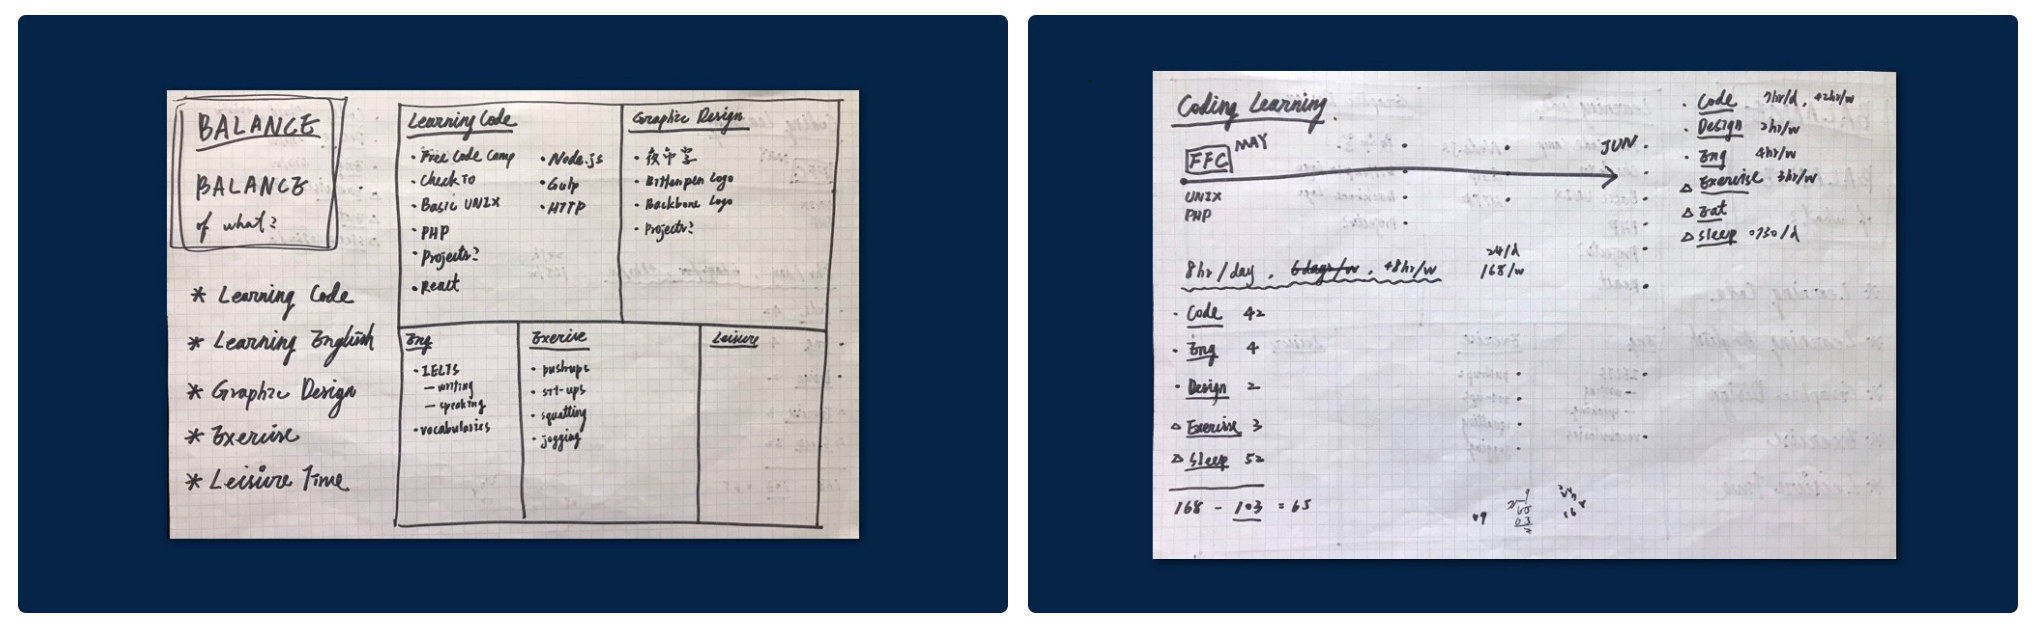 BALANCE
BALANCE
of what?
* Learning Code
* Learning English
* Graphic Design
* Exercise
* Leisure Time
Learning Code
· Free Code Camp
· Check To
· Basic UNIX
· PHP
· Projects?
· React
· Node.js
· Gulp
· HTTP
Graphic Design
· Bitterpen Logo
· Backbone Logo
· Projects?
Eng
· IELTS
— writing
— speaking
· vocabularies
Exercise
· pushups
· sit-ups
· squatting
· jogging
Leisure
Coding Learning.
FFC MAY JUN
UNIX
PHP
8hr/day. 6days/w. 48hr/w
24/d
168/w
· Code 42
· Eng 4
· Design 2
△ Exercise 3
△ Sleep 52
168 - 103 = 65
· Code 7hr/d, 42hr/w
· Design 2hr/w
· Eng 4hr/w
△ Exercise 3hr/w
△ Eat
△ Sleep 0730/d